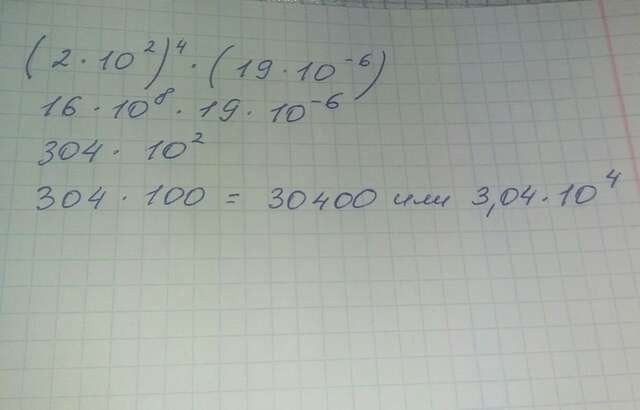 (2·10²)⁴·(19·10⁻⁶)
16·10⁸·19·10⁻⁶
304·10²
304·100 = 30400 или 3,04·10⁴